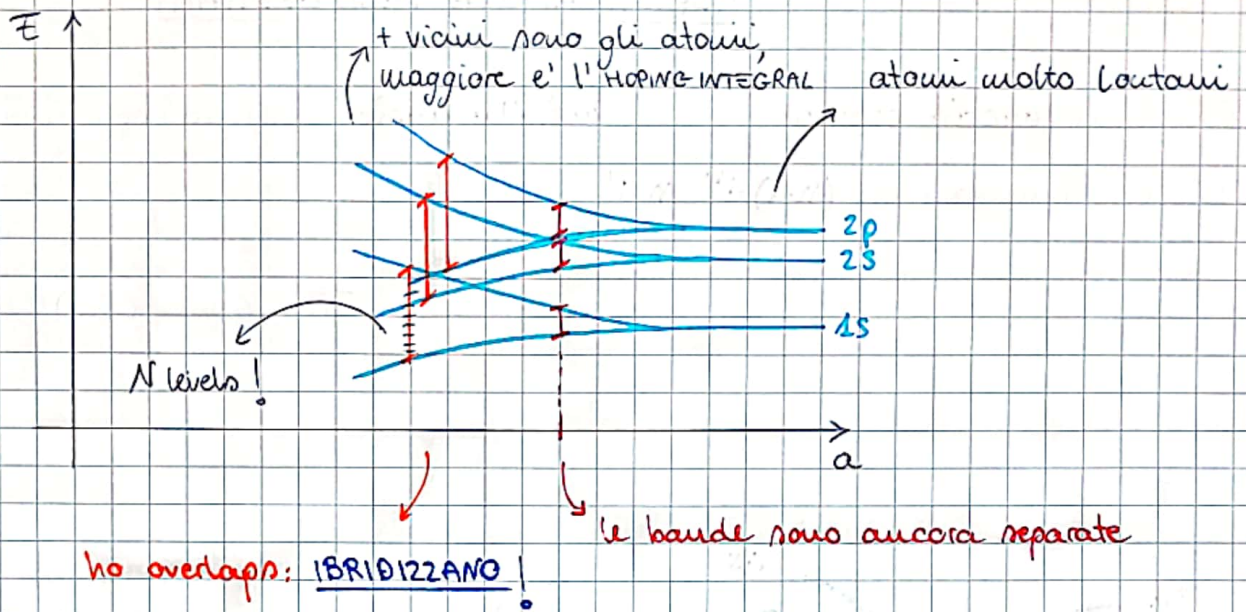 E
+ vicini sono gli atomi,
maggiore e' l'HOPING INTEGRAL
atomi molto lontani
2p
2s
1s
N levels!
a
le bande sono ancora separate
ho overlaps: IBRIDIZZANO!